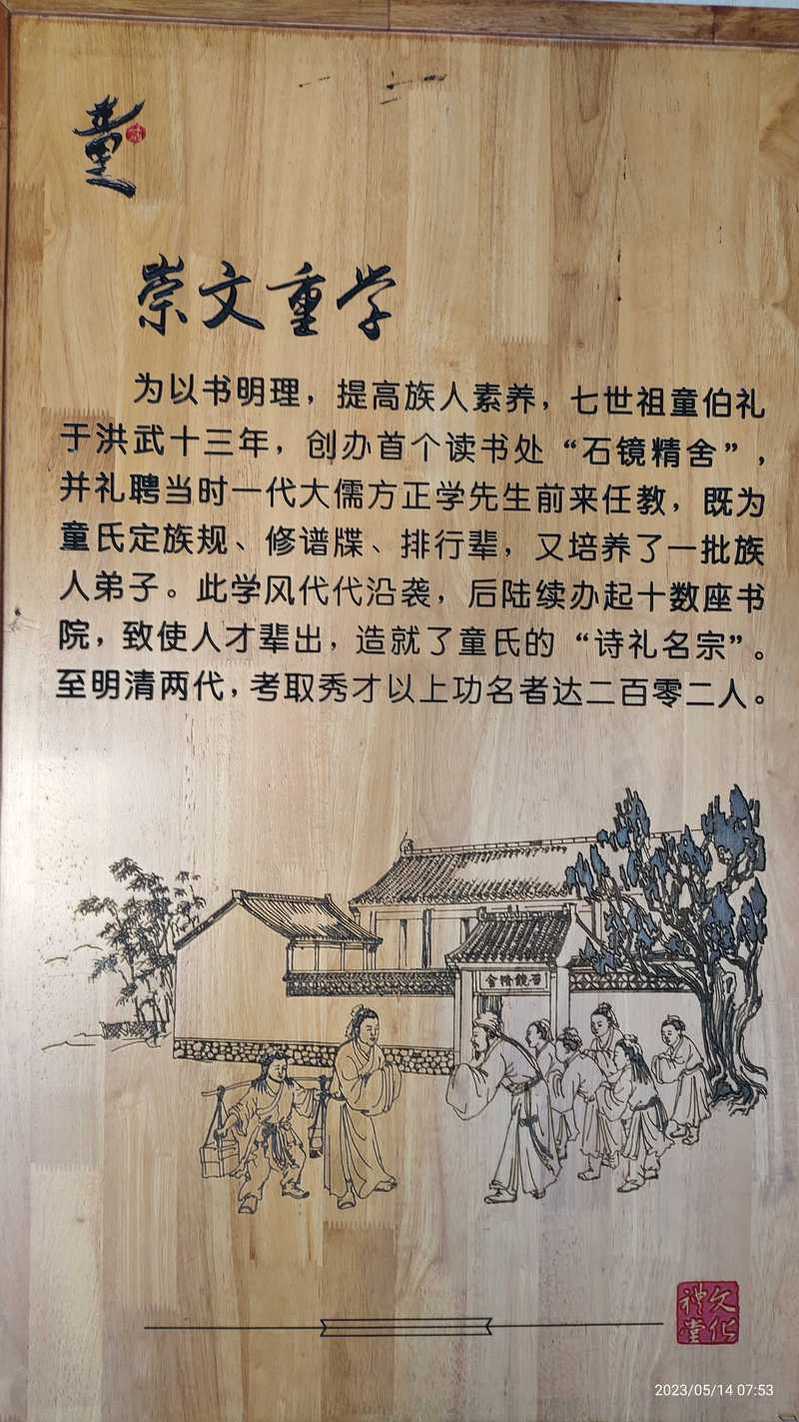 童
崇文重学
为以书明理，提高族人素养，七世祖童伯礼
于洪武十三年，创办首个读书处“石镜精舍”，
并礼聘当时一代大儒方正学先生前来任教，既为
童氏定族规、修谱牒、排行辈，又培养了一批族
人弟子。此学风代代沿袭，后陆续办起十数座书
院，致使人才辈出，造就了童氏的“诗礼名宗”。
至明清两代，考取秀才以上功名者达二百零二人。
舍精镜石
文化
禮堂
2023/05/14 07:53